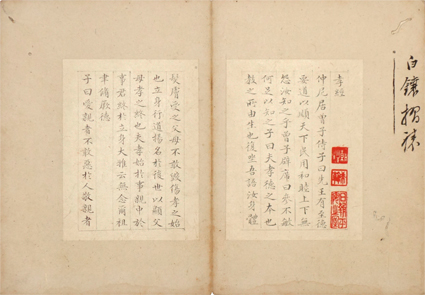 白鑲摺裱
孝經
仲尼居曾子侍子曰先王有至德
要道以順天下民用和睦上下無
怨汝知之乎曾子辟席曰參不敏
何足以知之子曰夫孝德之本也
教之所由生也復坐吾語汝身體
髮膚受之父母不敢毀傷孝之始
也立身行道揚名於後世以顯父
母孝之終也夫孝始於事親中於
事君終於立身大雅云無念爾祖
聿脩厥德
子曰愛親者不敢惡於人敬親者